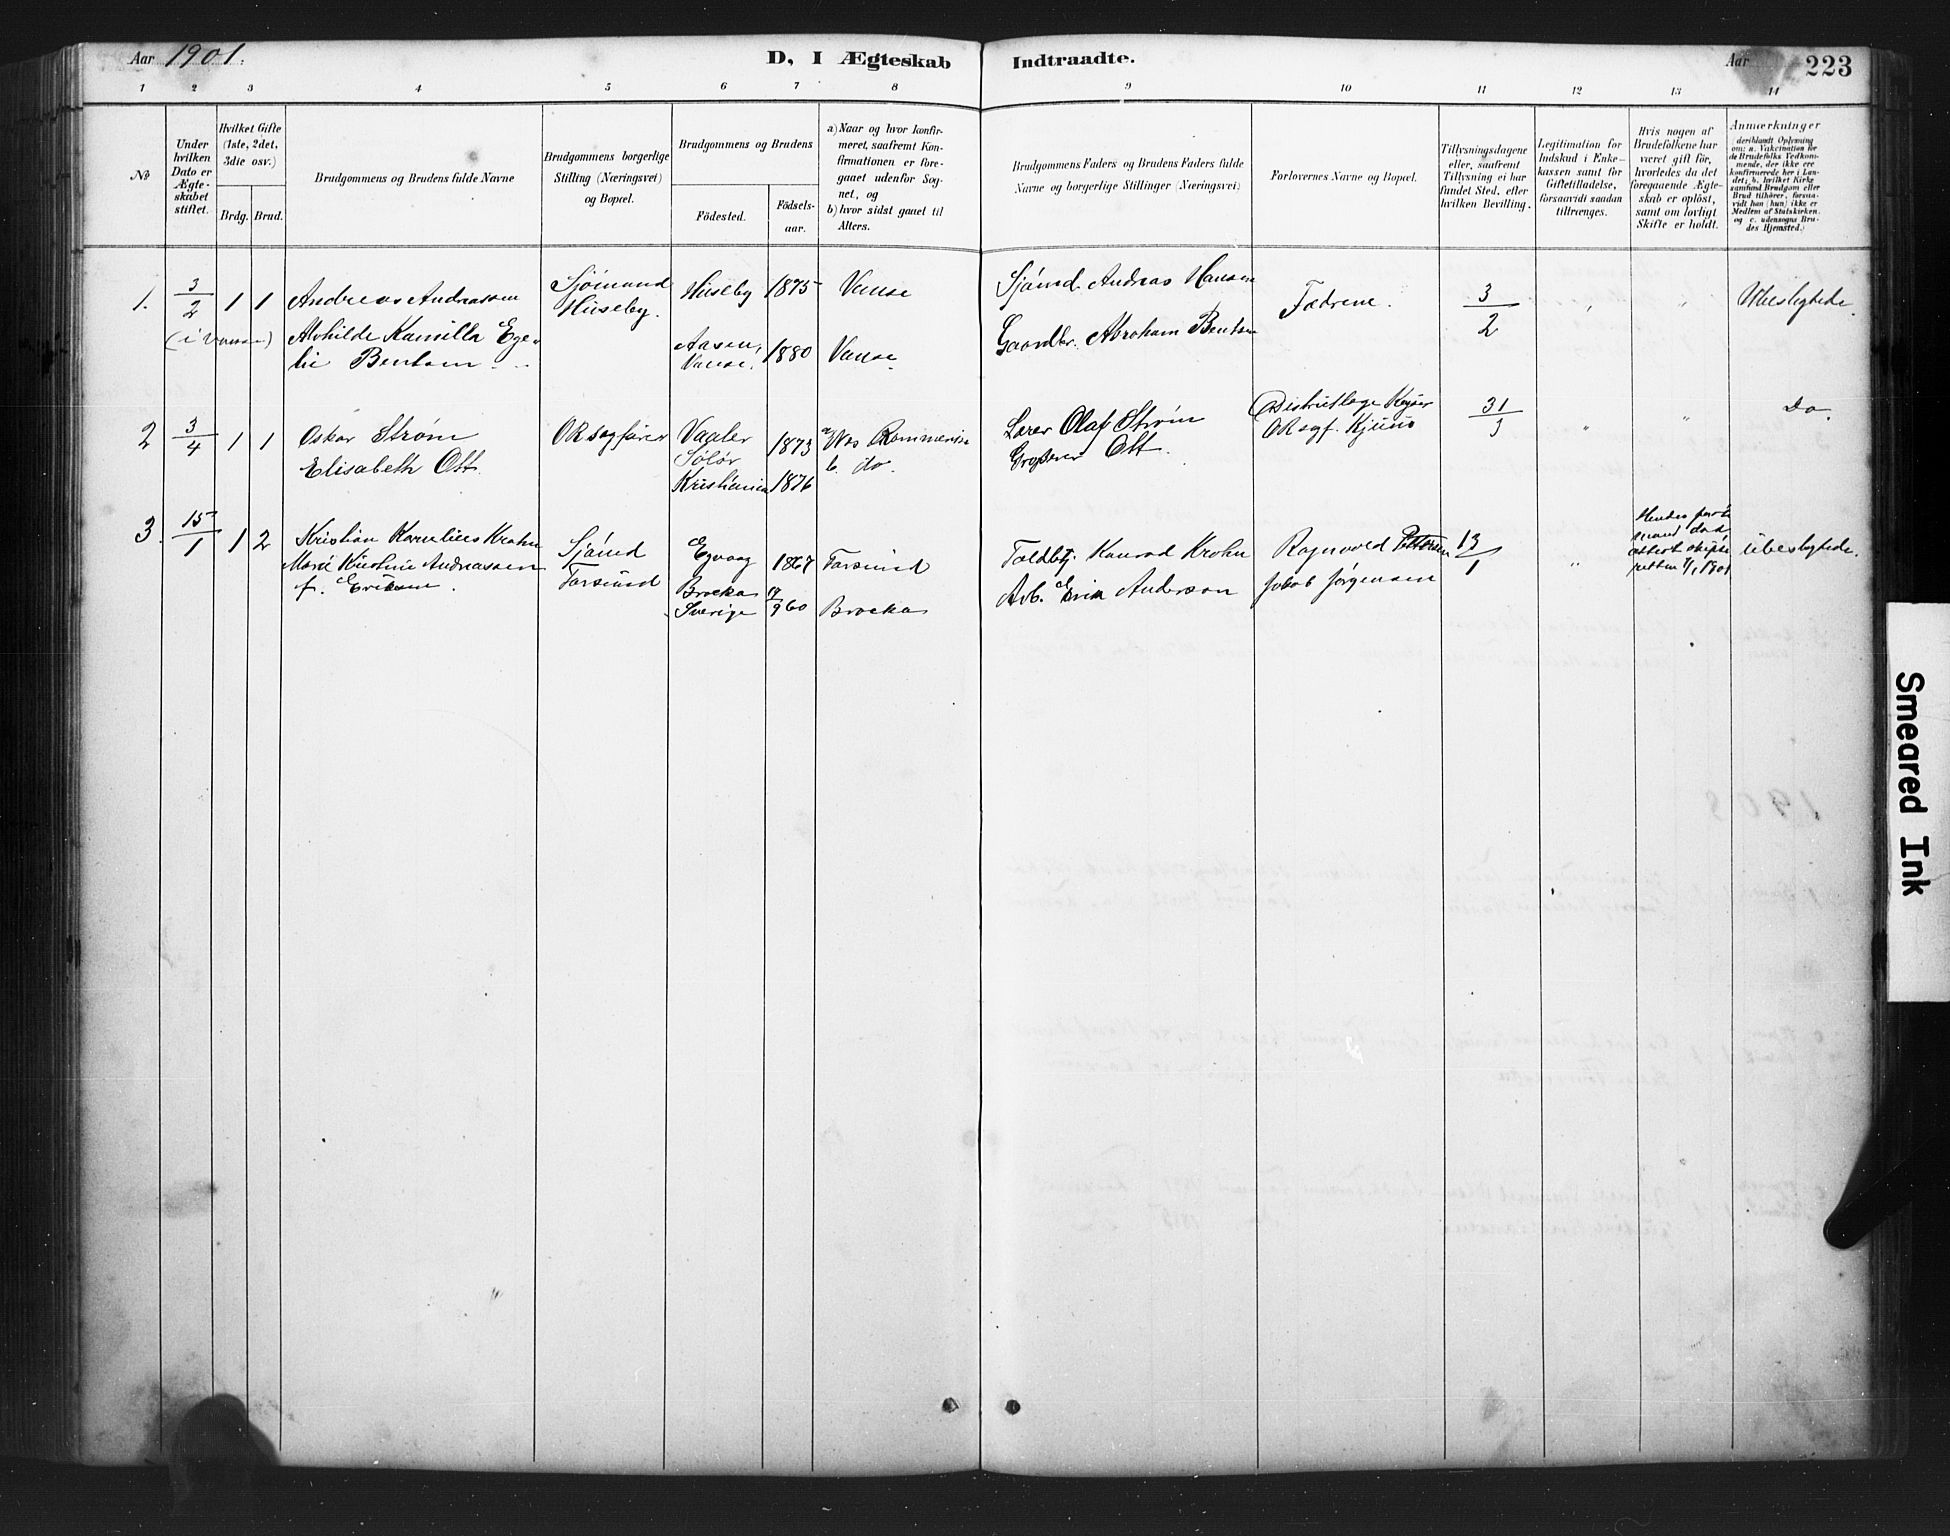 Aar 1901.
D, I Ægteskab Indtraadte.
Aar 223
1 2 3 4 5 6 7 8 9 10 11 12 13 14
No
Under hvilken Dato er Ægteskabet stiftet.
Hvilket Gifte (1ste, 2det, 3die osv.)
Brdg. Brud.
Brudgommens og Brudens fulde Navne
Brudgommens borgerlige Stilling (Næringsvei) og Bopæl.
Brudgommens og Brudens
Födested.
Födselsaar.
a) Naar og hvor konfirmeret, saafremt Konfirmationen er foregaaet udenfor Sognet, og
b) hvor sidst gaaet til Alters.
Brudgommens Faders og Brudens Faders fulde Navne og borgerlige Stillinger (Næringsvei)
Forlovernes Navne og Bopæl.
Tillysningsdagene eller, saafremt Tillysning ei har fundet Sted, efter hvilken Bevilling.
Legitimation for Indskud i Enkekassen samt for Giftetilladelse, forsaavidt saadan tiltrænges.
Hvis nogen af Brudefolkene har været gift för, hvorledes da det foregaaende Ægteskab er oplöst, samt om lovligt Skifte er holdt.
Anmærkninger
deriblandt Oplysning om: a. Vakcination for de Brudefolks Vedkommende, der ikke ere konfirmerede her i Landet; b. hvilket Kirkesamfund Brudgom eller Brud tilhörer, forsaavidt han (hun) ikke er Medlem af Statskirken. og c. udensogns Brudes Hjemsted.)
1. 3/2 1 1 Andreas Andreassen Sjömand Huseby 1875 Vanse Sjömd. Andreas Hansen Fædrene. 3/2 " " Ubeslægtede.
Huseby.
(i Vanse) Alvhilde Kamilla Ege- Aasen, 1880 Vanse Gaardbr. Abraham Bentsen
lie Bentsen. Vanse.
2 3/4 1 1 Oskar Strøm ORsagfører Vaaler 1873 Lærer Olaf Strøm Distriktslæge Keyser 31/3 " " Do.
Solør b. do. ORsgf.
Elisabeth Ott. Kristiania 1876 Grosserer Ott.
3. 15/1 1 2 Kristian Kornelius Krohn Sjömd Egvaag 1867 Farsund Toldbtj. Konrad Krohn Ragnvald Pettersen 13/1 " Hendes første
mand død,
attest skifte-
retten 1/1 1901 ubeslægtede.
Marie Kristine Andreassen Farsund Brocka 960 Brocka Arb. Erik Anderson Jakob Jørgensen
f. Erikson. Sverige
Smeared Ink